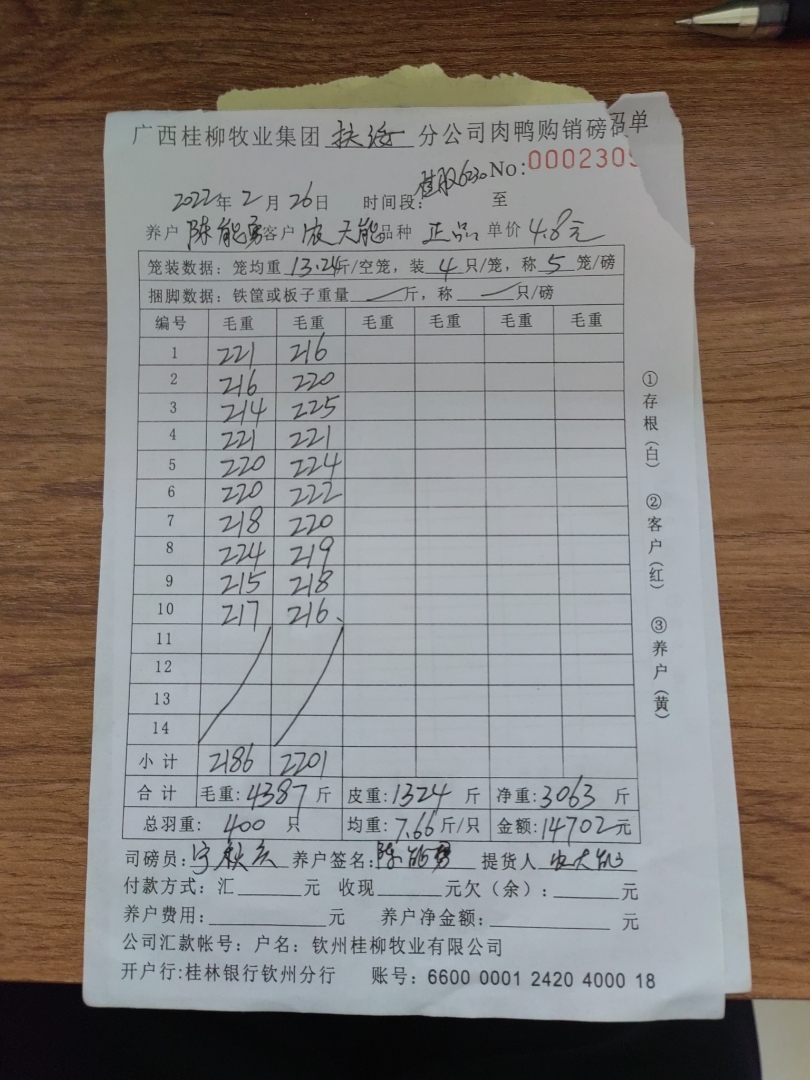 广西桂柳牧业集团 扶绥 分公司肉鸭购销磅码单
No:000230
2022年 2月 26日 时间段: 至
养户 陈能勇 客户 农天能 品种 正品 单价 4.8元
笼装数据：笼均重 13.24斤/空笼，装 4 只/笼，称 5 笼/磅
捆脚数据：铁筐或板子重量 斤，称 只/磅
编号 毛重 毛重 毛重 毛重 毛重 毛重
1 221 216
2 216 220
3 214 225
4 221 221
5 220 224
6 220 222
7 218 220
8 224 219
9 215 218
10 217 216
11
12
13
14
小计 2186 2201
合计 毛重:4387斤 皮重:1324斤 净重:3063斤
总羽重: 400 只 均重:7.66斤/只 金额:14702元
司磅员: 养户签名:陈能勇 提货人 农天能
付款方式：汇 元 收现 元欠（余）: 元
养户费用: 元 养户净金额: 元
公司汇款帐号：户名：钦州桂柳牧业有限公司
开户行:桂林银行钦州分行 账号：6600 0001 2420 4000 18
①存根（白） ②客户（红） ③养户（黄）